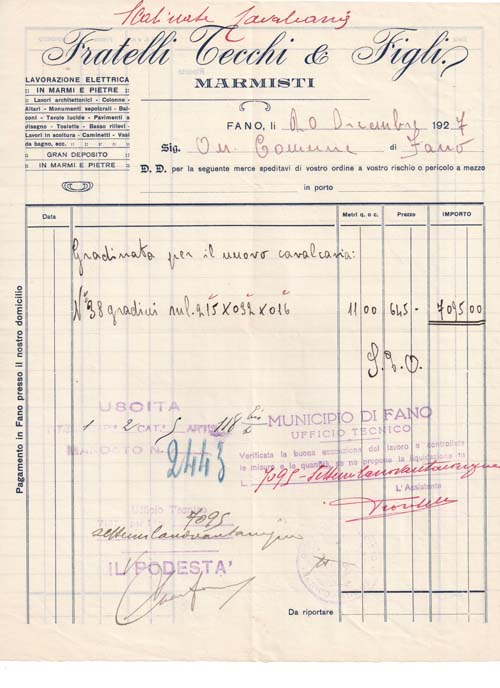 Fratelli Tecchi & Figli.
MARMISTI
LAVORAZIONE ELETTRICA
IN MARMI E PIETRE
Lavori architettonici - Colonne
Altari - Monumenti sepolcrali - Bal-
coni - Tavole lucide - Pavimenti a
disegno - Toelette - Basso rilievi
Lavori in scoltura - Caminetti - Vasi
da bagno, ecc.
GRAN DEPOSITO
IN MARMI E PIETRE
FANO, li 20 Dicembre 1927
Sig. On. Comune di Fano
D. D. per la seguente merce speditavi di vostro ordine a vostro rischio o pericolo a mezzo
in porto
Data Metri q. o c. Prezzo IMPORTO
Pagamento in Fano presso il nostro domicilio
Gradinata per il nuovo cavalcavia:
N° 38 gradini ml. 2.15 X 0.92 X 0.16 11 00 645 - 7095.00
S. E. O.
USCITA
1 2 5 118 bis
MANDATO N. 2443
MUNICIPIO DI FANO
UFFICIO TECNICO
Verificata la buona esecuzione del lavoro e controllate
le misure e le quantità se ne propone la liquidazione in
L. 7095 - Settemilanovantacinque
L'Assistente
Ufficio Tecnico
7095
settemilanovantacinque
IL PODESTA'
Da riportare